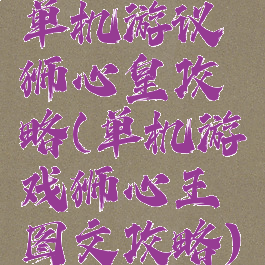 单机游议
狮心皇攻
略(单机游
戏狮心王
图文攻略)